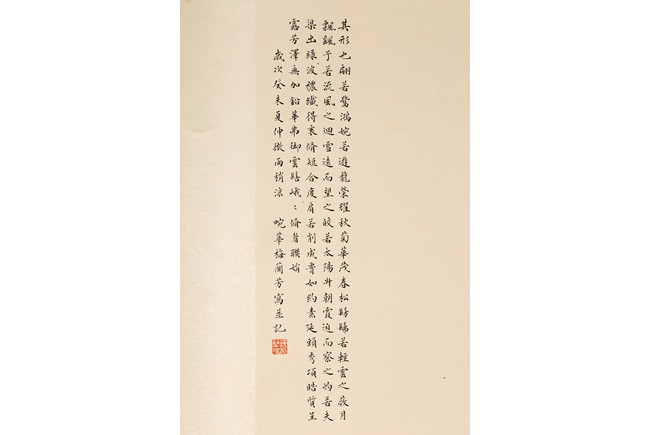 其形也翩若驚鴻婉若遊龍榮耀秋菊華茂春松髣髴若輕雲之蔽月
飄飄兮若流風之迴雪遠而望之皎若太陽升朝霞迫而察之灼若夫
渠出綠波禯纖得衷脩短合度肩若削成𦝫如約素延頸秀項皓質呈
露芳澤無加鉛華弗御雲髻峨〻脩眉聯娟
歲次癸未夏仲微雨稍涼 畹華梅蘭芳寫並記